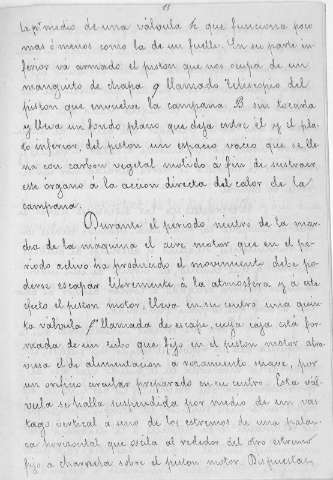 por medio de una válvula k que funciona poco
mas ó menos como la de un fuelle. En su parte in-
ferior va armado el piston que nos ocupa de un
manguito de chapa g llamado telescopio del
piston que envuelve la campana B sin tocarla
y lleva un fondo plano que deja entre él y el pla-
to inferior, del piston un espacio vacio que se lle-
na con carbon vegetal molido á fin de sustraer
este organo á la accion directa del calor de la
campana.
Durante el periodo neutro de la mar-
cha de la maquina el aire motor que en el pe-
riodo activo ha producido el movimiento debe po-
derse escapar libremente á la atmosfera y a este
efecto el piston motor, lleva en su centro una quin-
ta válvula llamada de escape, cuya caja está for-
mada de un tubo que fijo en el piston motor atra-
viesa el de alimentacion a rozamiento suave, por
un orificio circular preparado en su centro. Esta vál-
vula se halla suspendida por medio de un vás-
tago vertical á uno de los estremos de una palan-
ca horizontal que oscila al rededor del otro estremo
fijo a charnela sobre el piston motor. Dispuestas